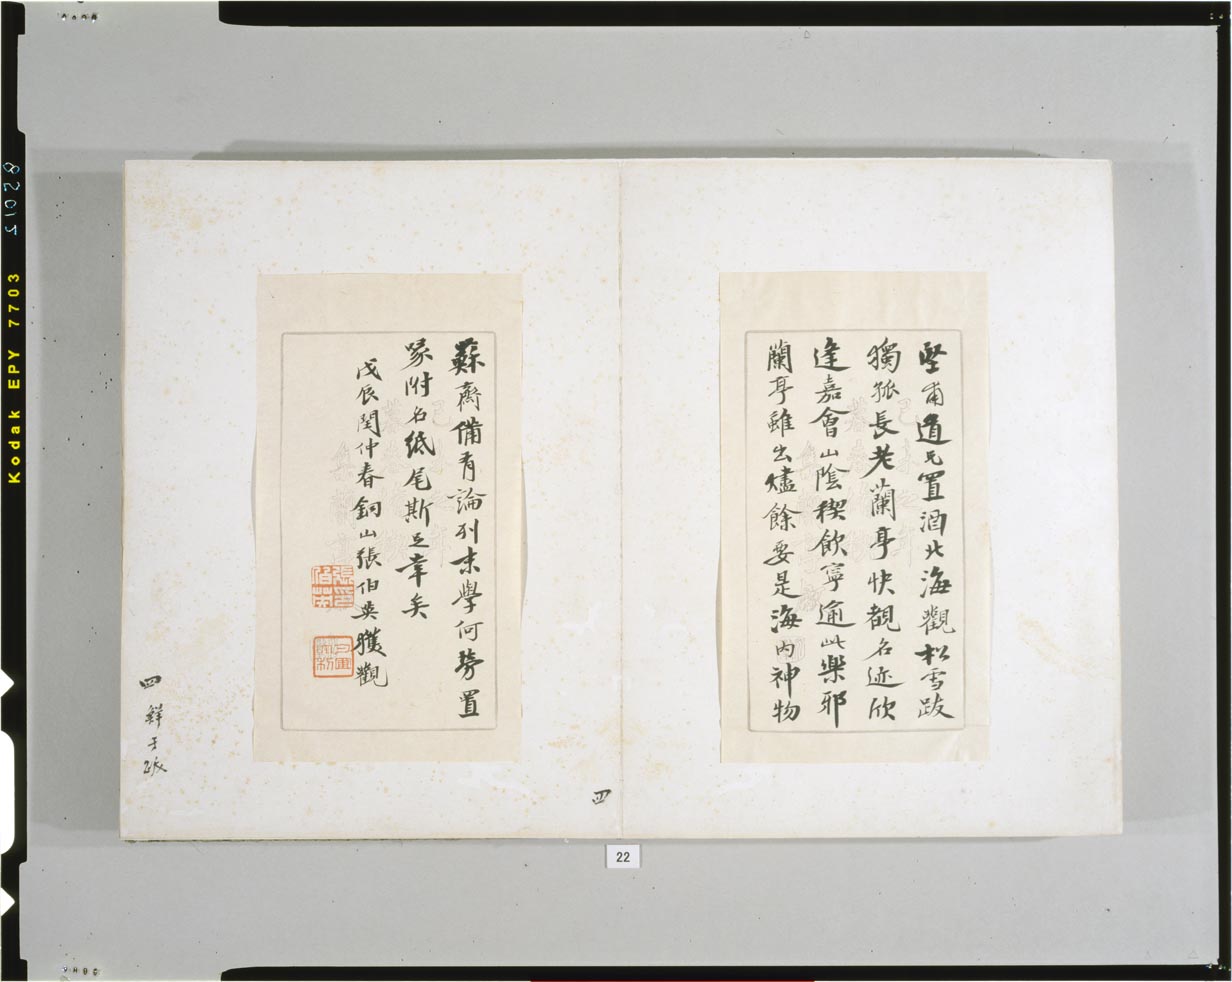 堅甫道兄置酒北海觀松雪跋
獨孤長老蘭亭快覩名迹欣
逢嘉會山陰稧飲寧逾此樂邪
蘭亭雖出燼餘要是海內神物
蘇齋備有論列末學何勞置
喙附名紙尾斯足幸矣
戊辰閏仲春銅山張伯英獲觀
張伯英印
四
四 鮮于跋
22
Kodak EPY 7703
21028